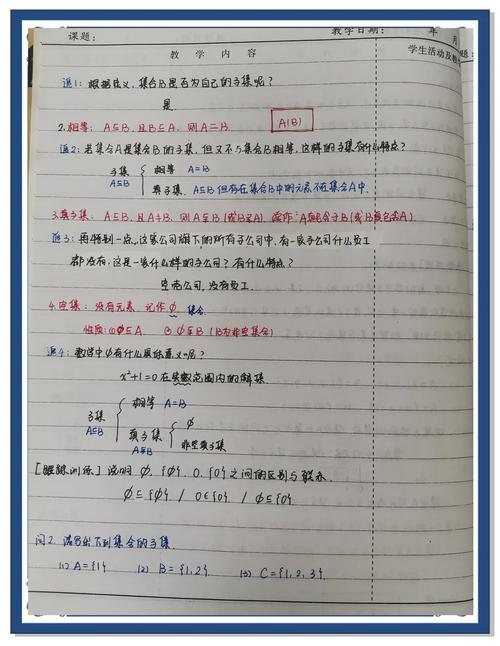 课题: 教学日期: 年 月
教 学 内 容 学生活动及教
追1: 根据定义, 集合B是否为自己的子集呢?
是
2.相等: A⊆B, 且B⊆A, 则A=B. A(B)
追2: 若集合A是集合B的子集, 但又不与集合B相等, 这样的子集有什么特点?
子集 相等 A=B
A⊆B 真子集. A⊆B但存在集合B中的元素不在集合A中.
3.真子集: A⊆B, 且A≠B, 则A⫋B(或B⫌A) 读作"A真包含于B(或B真包含A).
追3: 再特别一点, 这家公司旗下的所有子公司中, 有一家子公司什么员工
都没有, 这是一家什么样的子公司? 有什么特点?
空壳公司, 没有员工.
4.空集: 没有元素. 记作∅ 集合.
性质: ①∅⊆A ②∅⫋B (B为非空集合)
追4: 数学中∅有什么实际意义呢?
x²+1=0在实数范围内的解集.
子集 相等 A=B
A⊆B 真子集 ∅
A⫋B 非空真子集
说明 ∅, {∅}, 0, {0}之间的区别与联系
∅⊆{∅} / 0∈{0} / ∅⊆{0}
问2. 请写出下列集合的子集.
(1) A={1} (2) B={1,2} (3) C={1,2,3}